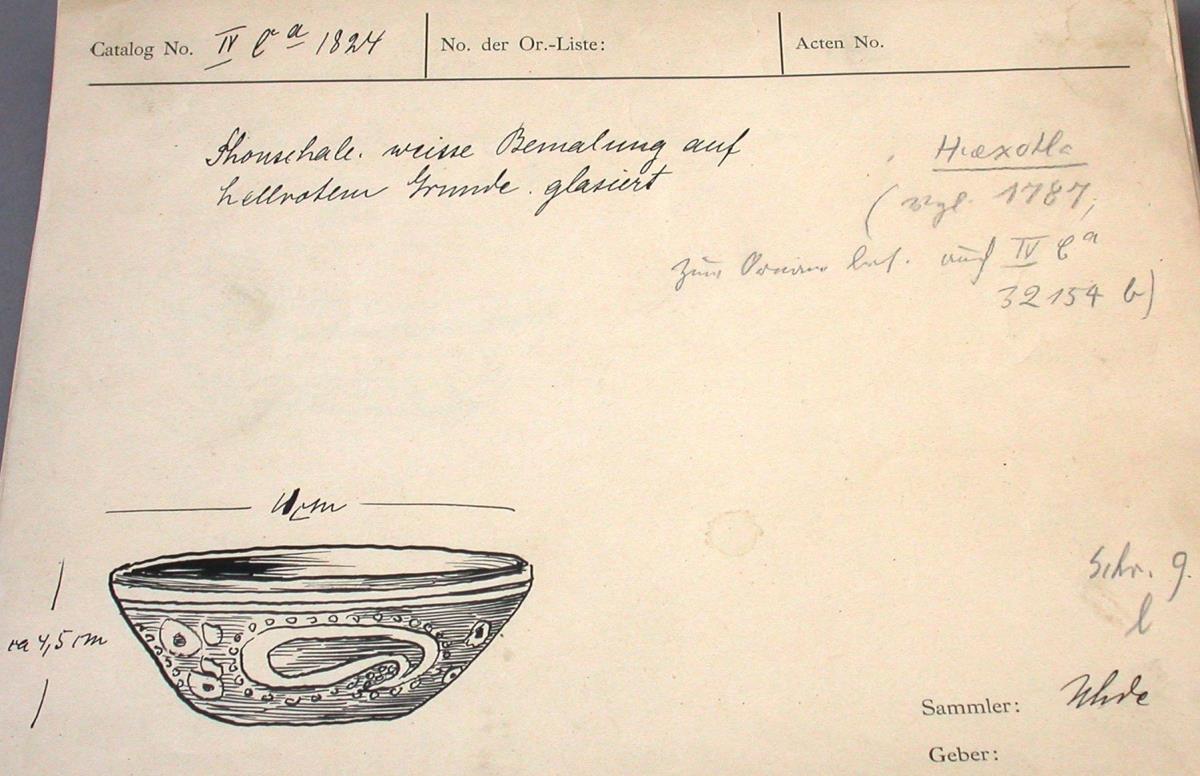 Catalog No. IV Ca 1824
No. der Or.-Liste:
Acten No.
Thonschale. weisse Bemalung auf
hellrotem Grunde. glasiert
Huexotla
(vgl. 1787,
zum bes. auch IV Ca
32154 b)
11 cm
ca 4,5 cm
Schr. 9.
l
Sammler: Uhde
Geber: